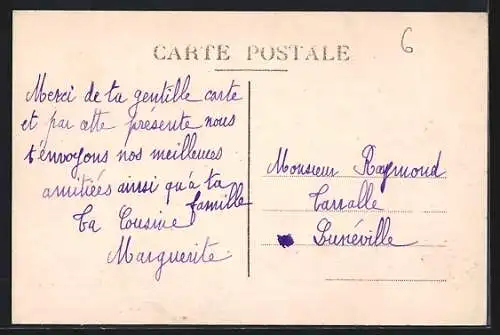 CARTE POSTALE
6
Merci de ta gentille carte
et par cette présente nous
t'envoyons nos meilleures
amitiées ainsi qu'à ta
famille
ta Cousine
Marguerite.
Monsieur Raymond
Lunéville